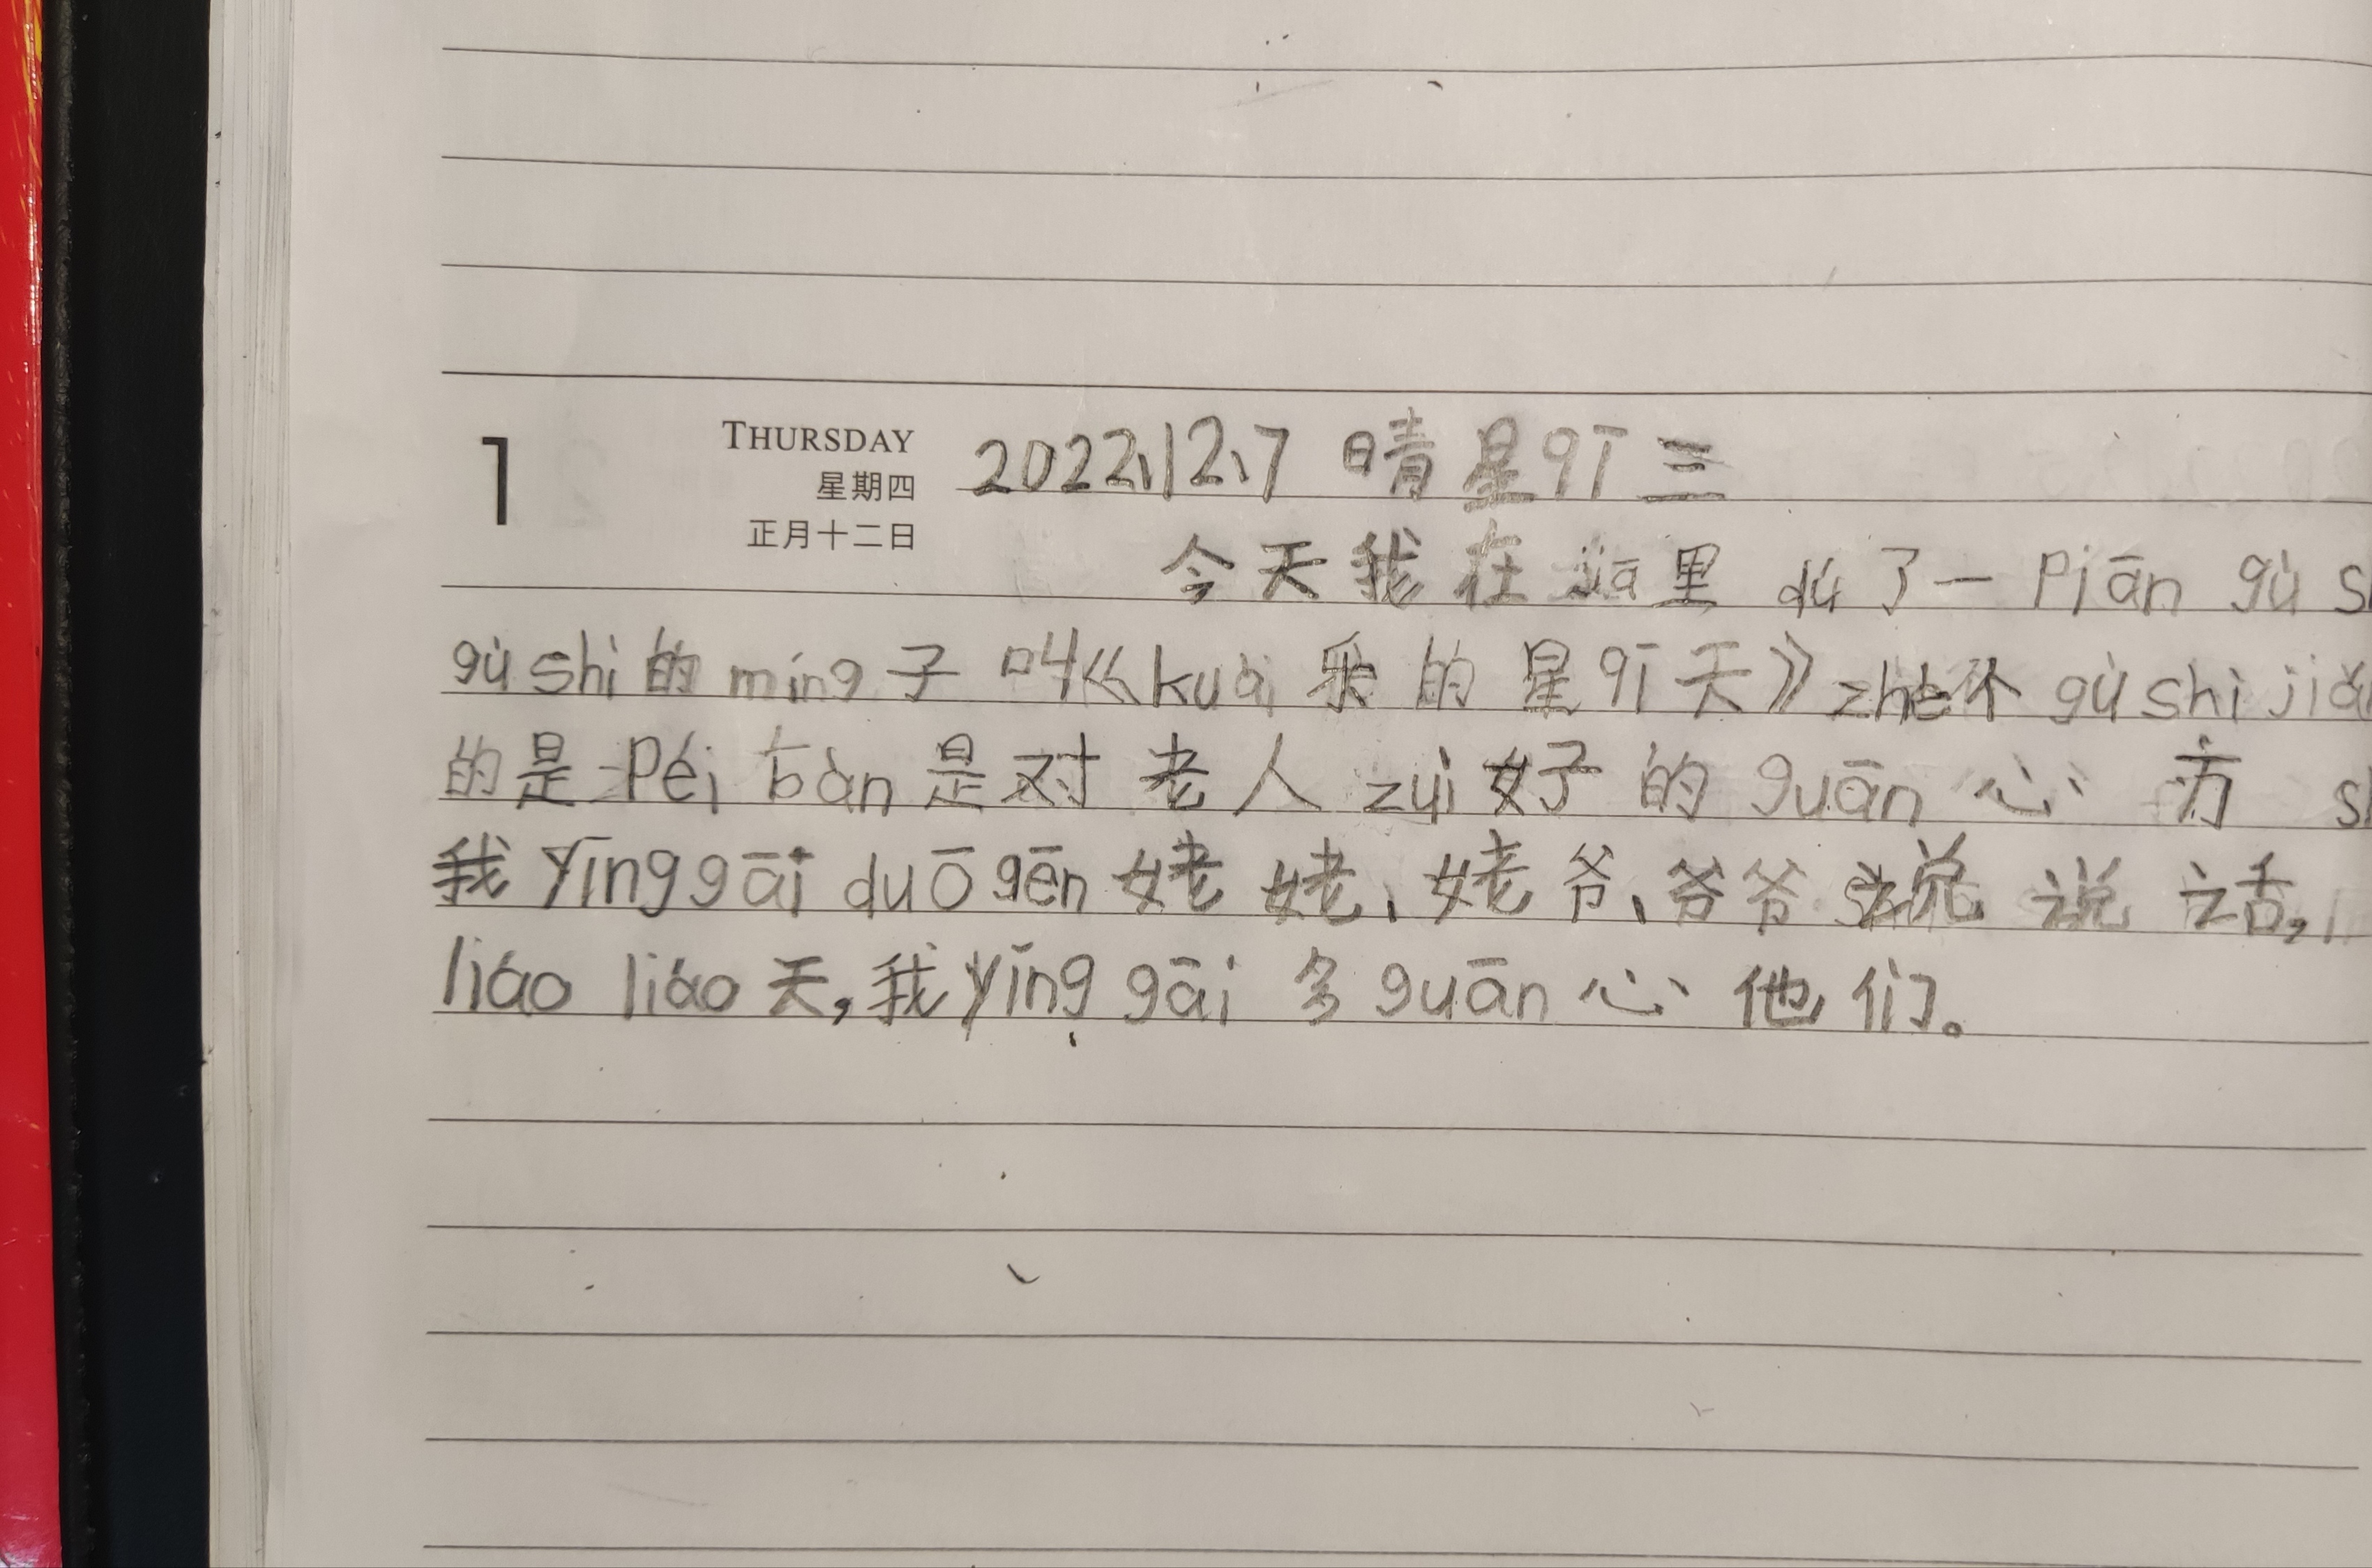 1
THURSDAY
星期四
正月十二日
2022、12、7 晴 星qī三
今天我在jiā里dú了一Piān gù
gù shi的míng子叫《kuài乐的星qī天》zhè个gù shi
的是Péi bàn是对老人zuì好的guān心 方
我Yīng gāi duō gēn姥姥、姥爷、爷爷说说话,
liáo liáo天,我yīng gāi多guān心他们。